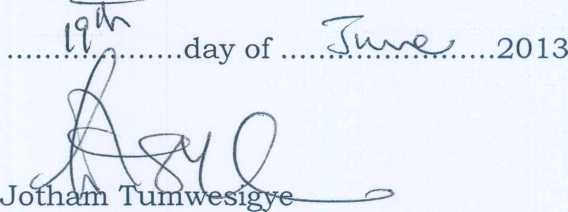 19th
..................day of ......June......................2013
Jotham Tumwesigye